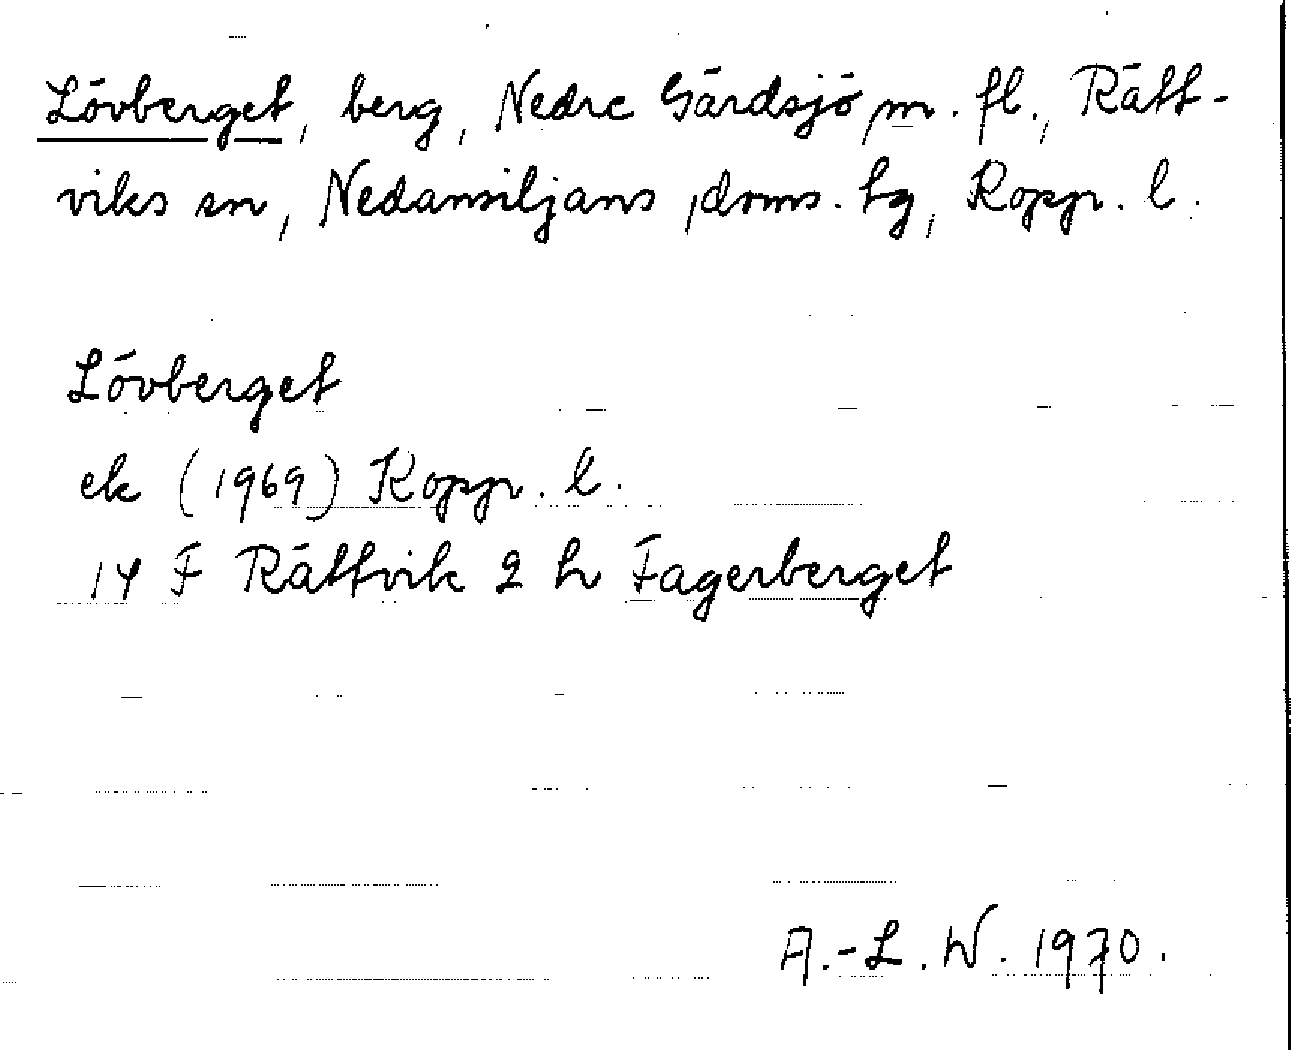 Lövberget, berg, Nedre Gärdsjö m. fl., Rätt-
viks sn, Nedansiljans doms. hg, Kopp. l.
Lövberget
ek (1969) Kopp. l.
14 F Rättvik 2 h Fagerberget
A.-L. W. 1970.